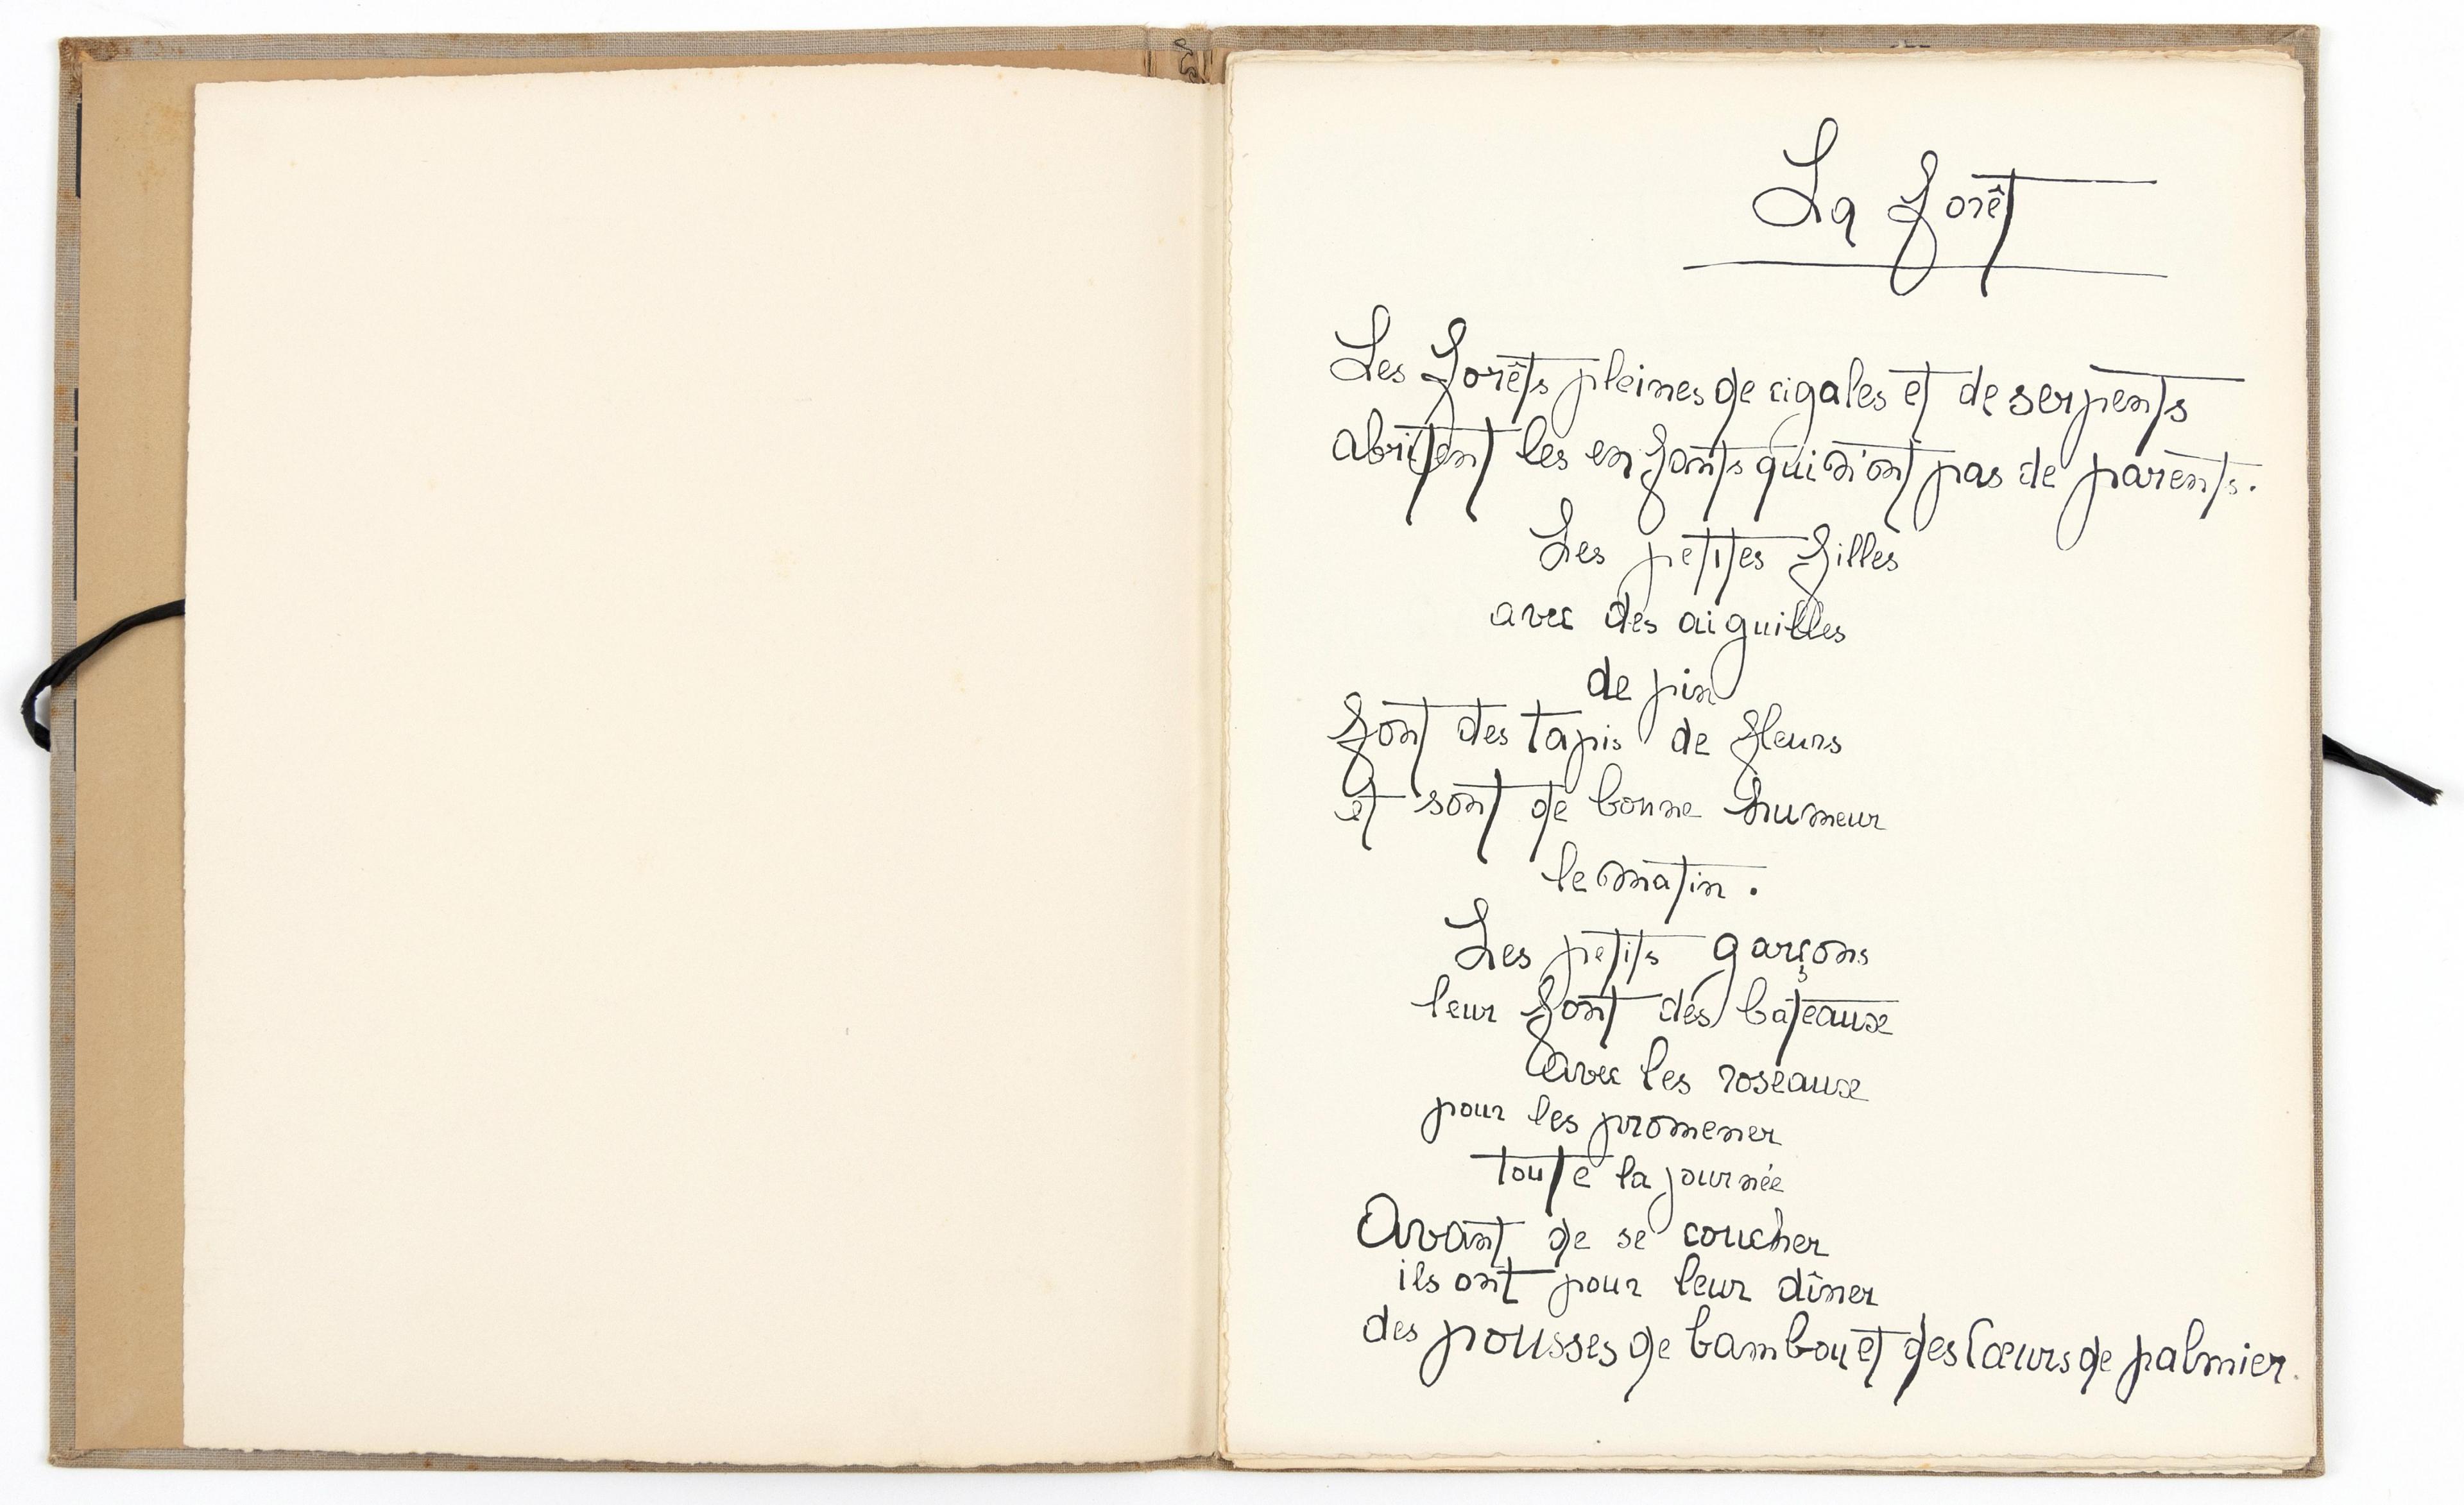 La forêt
Les forêts pleines de cigales et de serpents
abritent les enfants qui n'ont pas de parents.
Les petites filles
avec des aiguilles
de pin
font des tapis de fleurs
et sont de bonne humeur
le matin.
Les petits garçons
leur font des bateaux
avec les roseaux
pour les promener
toute la journée
Avant de se coucher
ils ont pour leur dîner
des pousses de bambou et des Cœurs de palmier.